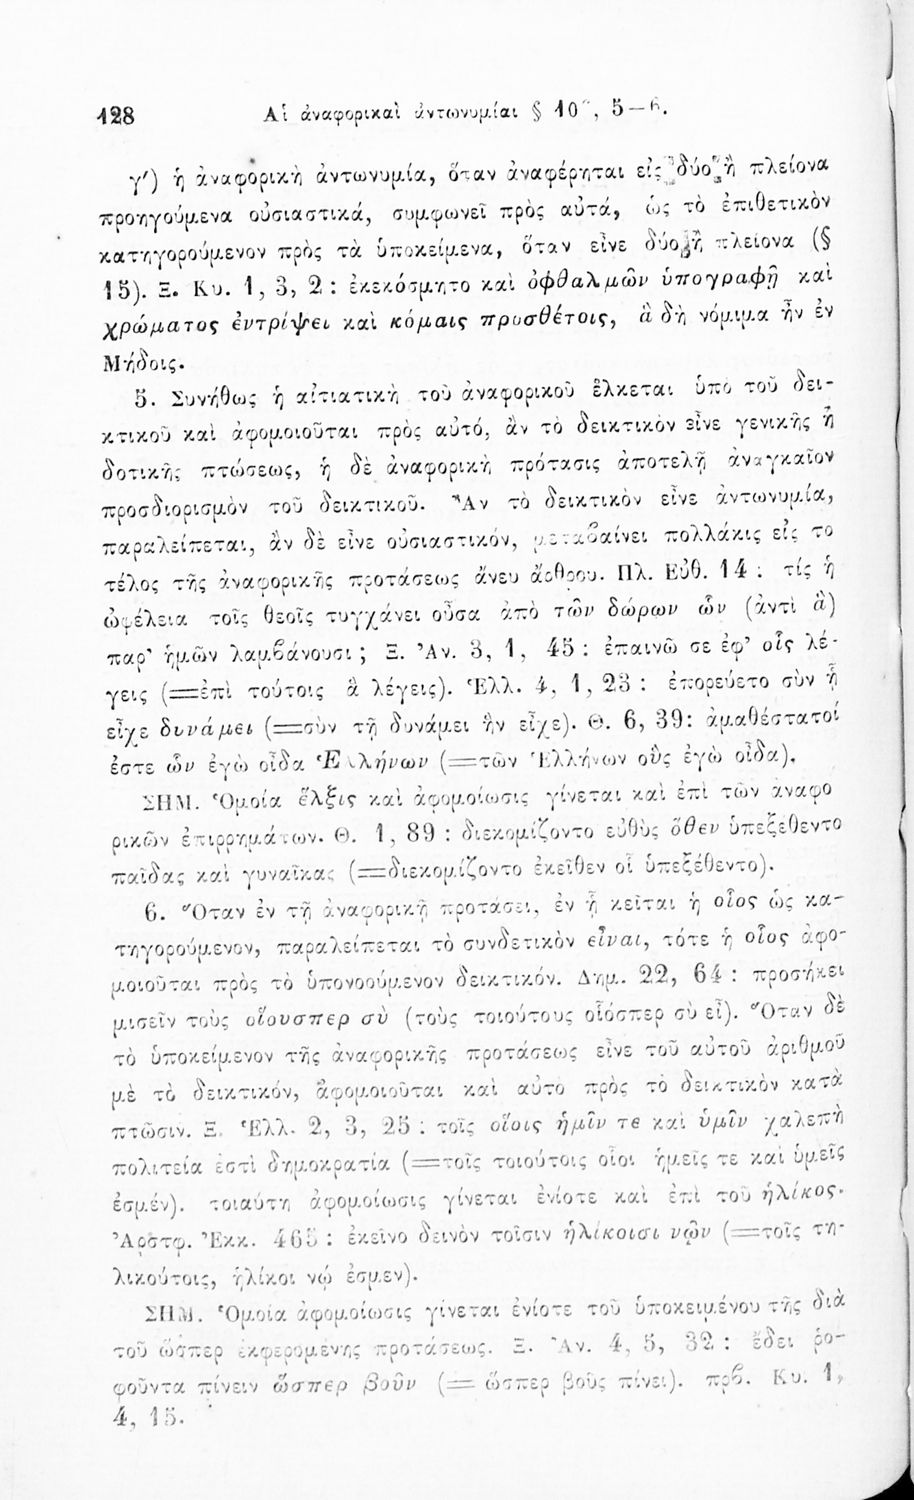 128 Αἱ ἀναφορικαὶ ἀντωνυμίαι § 10 , 5—6.
γ′) ἡ ἀναφορικὴ ἀντωνυμία, ὅταν ἀναφέρηται εἰς δύο ἢ πλείονα
προηγούμενα οὐσιαστικά, συμφωνεῖ πρὸς αὐτά, ὡς τὸ ἐπιθετικὸν
κατηγορούμενον πρὸς τὰ ὑποκείμενα, ὅταν εἶνε δύο ἢ πλείονα (§
15). Ξ. Κυ. 1, 3, 2 : ἐκεκόσμητο καὶ ὀφθαλμῶν ὑπογραφῇ καὶ
χρώματος ἐντρίψει καὶ κόμαις προσθέτοις, ἃ δὴ νόμιμα ἦν ἐν
Μήδοις.
5. Συνήθως ἡ αἰτιατικὴ τοῦ ἀναφορικοῦ ἕλκεται ὑπὸ τοῦ δει-
κτικοῦ καὶ ἀφομοιοῦται πρὸς αὐτό, ἂν τὸ δεικτικὸν εἶνε γενικῆς ἢ
δοτικῆς πτώσεως, ἡ δὲ ἀναφορικὴ πρότασις ἀποτελῇ ἀναγκαῖον
προσδιορισμὸν τοῦ δεικτικοῦ. Ἂν τὸ δεικτικὸν εἶνε ἀντωνυμία,
παραλείπεται, ἂν δὲ εἶνε οὐσιαστικόν, μεταβαίνει πολλάκις εἰς το
τέλος τῆς ἀναφορικῆς προτάσεως ἄνευ ἄρθρου. Πλ. Εὐθ. 14 : τίς ἡ
ὠφέλεια τοῖς θεοῖς τυγχάνει οὖσα ἀπὸ τῶν δώρων ὧν (ἀντὶ ἃ)
παρ' ἡμῶν λαμβάνουσι ; Ξ. Ἀν. 3, 1, 45 : ἐπαινῶ σε ἐφ' οἷς λέ-
γεις (=ἐπὶ τούτοις ἃ λέγεις). Ἑλλ. 4, 1, 23 : ἐπορεύετο σὺν ᾗ
εἶχε δυνάμει (=σὺν τῇ δυνάμει ἣν εἶχε). Θ. 6, 39: ἀμαθέστατοί
ἐστε ὧν ἐγὼ οἶδα Ἑλλήνων (=τῶν Ἑλλήνων οὓς ἐγὼ οἶδα).
ΣΗΜ. Ὁμοία ἕλξις καὶ ἀφομοίωσις γίνεται καὶ ἐπὶ τῶν ἀναφο
ρικῶν ἐπιρρημάτων. Θ. 1, 89 : διεκομίζοντο εὐθὺς ὅθεν ὑπεξέθεντο
παῖδας καὶ γυναῖκας (=διεκομίζοντο ἐκεῖθεν οἷ ὑπεξέθεντο).
6. Ὅταν ἐν τῇ ἀναφορικῇ προτάσει, ἐν ᾗ κεῖται ἡ οἷος ὡς κα-
τηγορούμενον, παραλείπεται τὸ συνδετικὸν εἶναι, τότε ἡ οἷος ἀφο-
μοιοῦται πρὸς τὸ ὑπονοούμενον δεικτικόν. Δημ. 22, 64 : προσήκει
μισεῖν τοὺς οἵουσπερ σὺ (τοὺς τοιούτους οἷόσπερ σὺ εἶ). Ὅταν δὲ
τὸ ὑποκείμενον τῆς ἀναφορικῆς προτάσεως εἶνε τοῦ αὐτοῦ ἀριθμοῦ
μὲ τὸ δεικτικόν, ἀφομοιοῦται καὶ αὐτὸ πρὸς τὸ δεικτικὸν κατὰ
πτῶσιν. Ξ. Ἑλλ. 2, 3, 25 : τοῖς οἵοις ἡμῖν τε καὶ ὑμῖν χαλεπὴ
πολιτεία ἐστὶ δημοκρατία (=τοῖς τοιούτοις οἷοι ἡμεῖς τε καὶ ὑμεῖς
ἐσμέν). τοιαύτη ἀφομοίωσις γίνεται ἐνίοτε καὶ ἐπὶ τοῦ ἡλίκος.
Ἀρστφ. Ἐκκ. 465 : ἐκεῖνο δεινὸν τοῖσιν ἡλίκοισι νῷν (=τοῖς τη-
λικούτοις, ἡλίκοι νώ ἐσμεν).
ΣΗΜ. Ὁμοία ἀφομοίωσις γίνεται ἐνίοτε τοῦ ὑποκειμένου τῆς διὰ
τοῦ ὥσπερ ἐκφερομένης προτάσεως. Ξ. Ἀν. 4, 5, 32 : ἔδει ῥο-
φοῦντα πίνειν ὥσπερ βοῦν (= ὥσπερ βοῦς πίνει). πρβ. Κυ. 1,
4, 15.